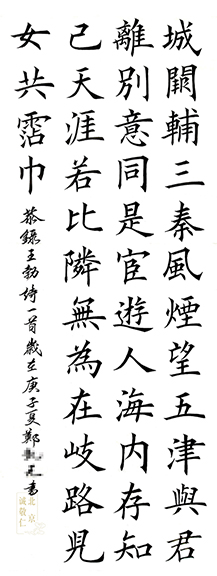 城闕輔三秦風煙望五津與君
離別意同是宦遊人海内存知
己天涯若比隣無為在岐路兒
女共霑巾
恭録王勃詩一首歲在庚子夏鄭 書
北京
诚敬仁